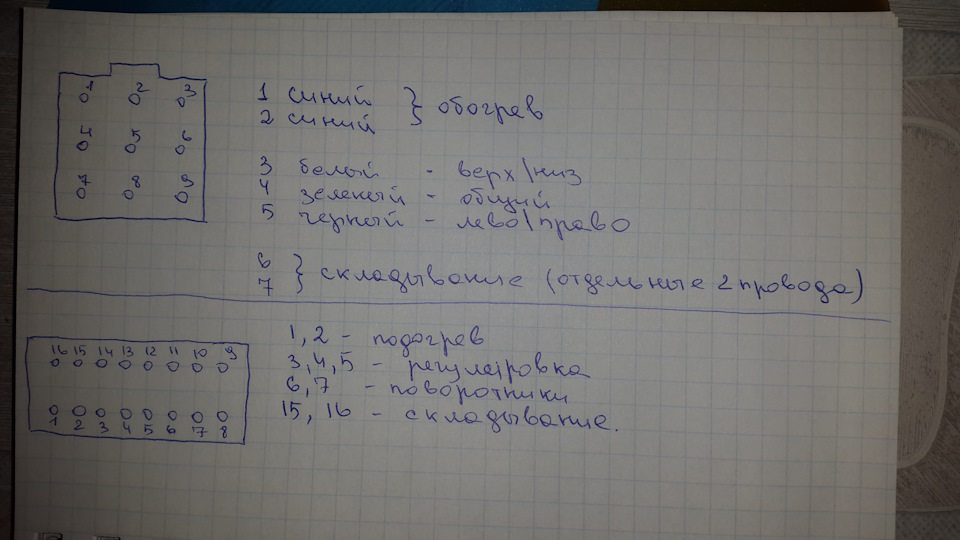 1 2 3
4 5 6
7 8 9
1 синий } обогрев
2 синий
3 белый - верх\низ
4 зеленый - общий
5 черный - лево\право
6 } складывание (отдельные 2 провода)
7
16 15 14 13 12 11 10 9
1 2 3 4 5 6 7 8
1, 2 - подогрев
3, 4, 5 - регулировка
6, 7 - поворотники
15, 16 - складывание.